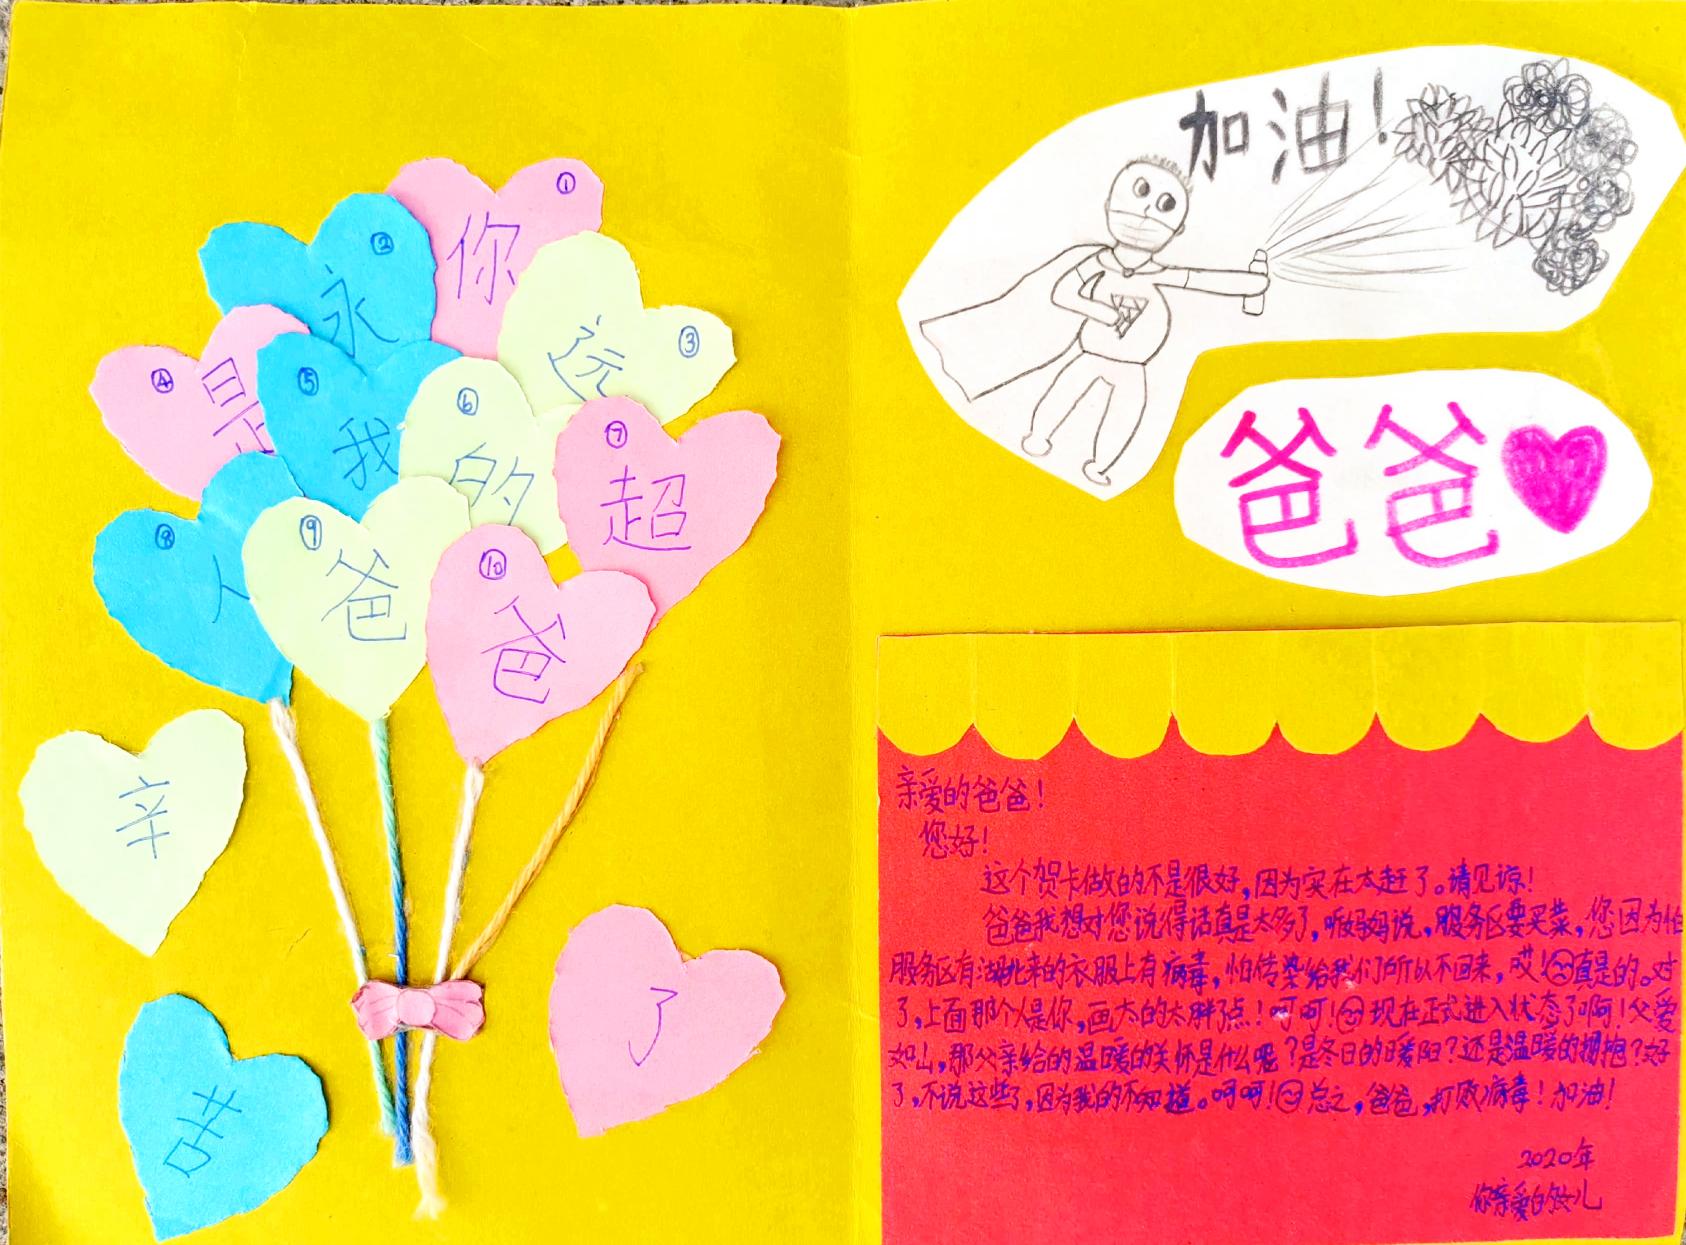 ① 你
② 永
③ 远
④ 是
⑤ 我
⑥ 的
⑦ 超
⑧ 人
⑨ 爸
⑩ 爸
辛
苦
了
加油!
爸爸
亲爱的爸爸!
您好!
这个贺卡做的不是很好,因为实在太赶了。请见谅!
爸爸我想对您说得话真是太多了,听妈妈说,服务区要买菜,您因为怕
服务区有湖北来的衣服上有病毒,怕传染给我们所以不回来,哎!真是的。对
了,上面那个人是你,画太的太胖了点!呵呵!现在正式进入状态了啊!父爱
如山,那父亲给的温暖的关怀是什么呢?是冬日的暖阳?还是温暖的拥抱?好
了,不说这些了,因为我的不知道。呵呵!总之,爸爸,打败病毒!加油!
2020年
你亲爱的女儿